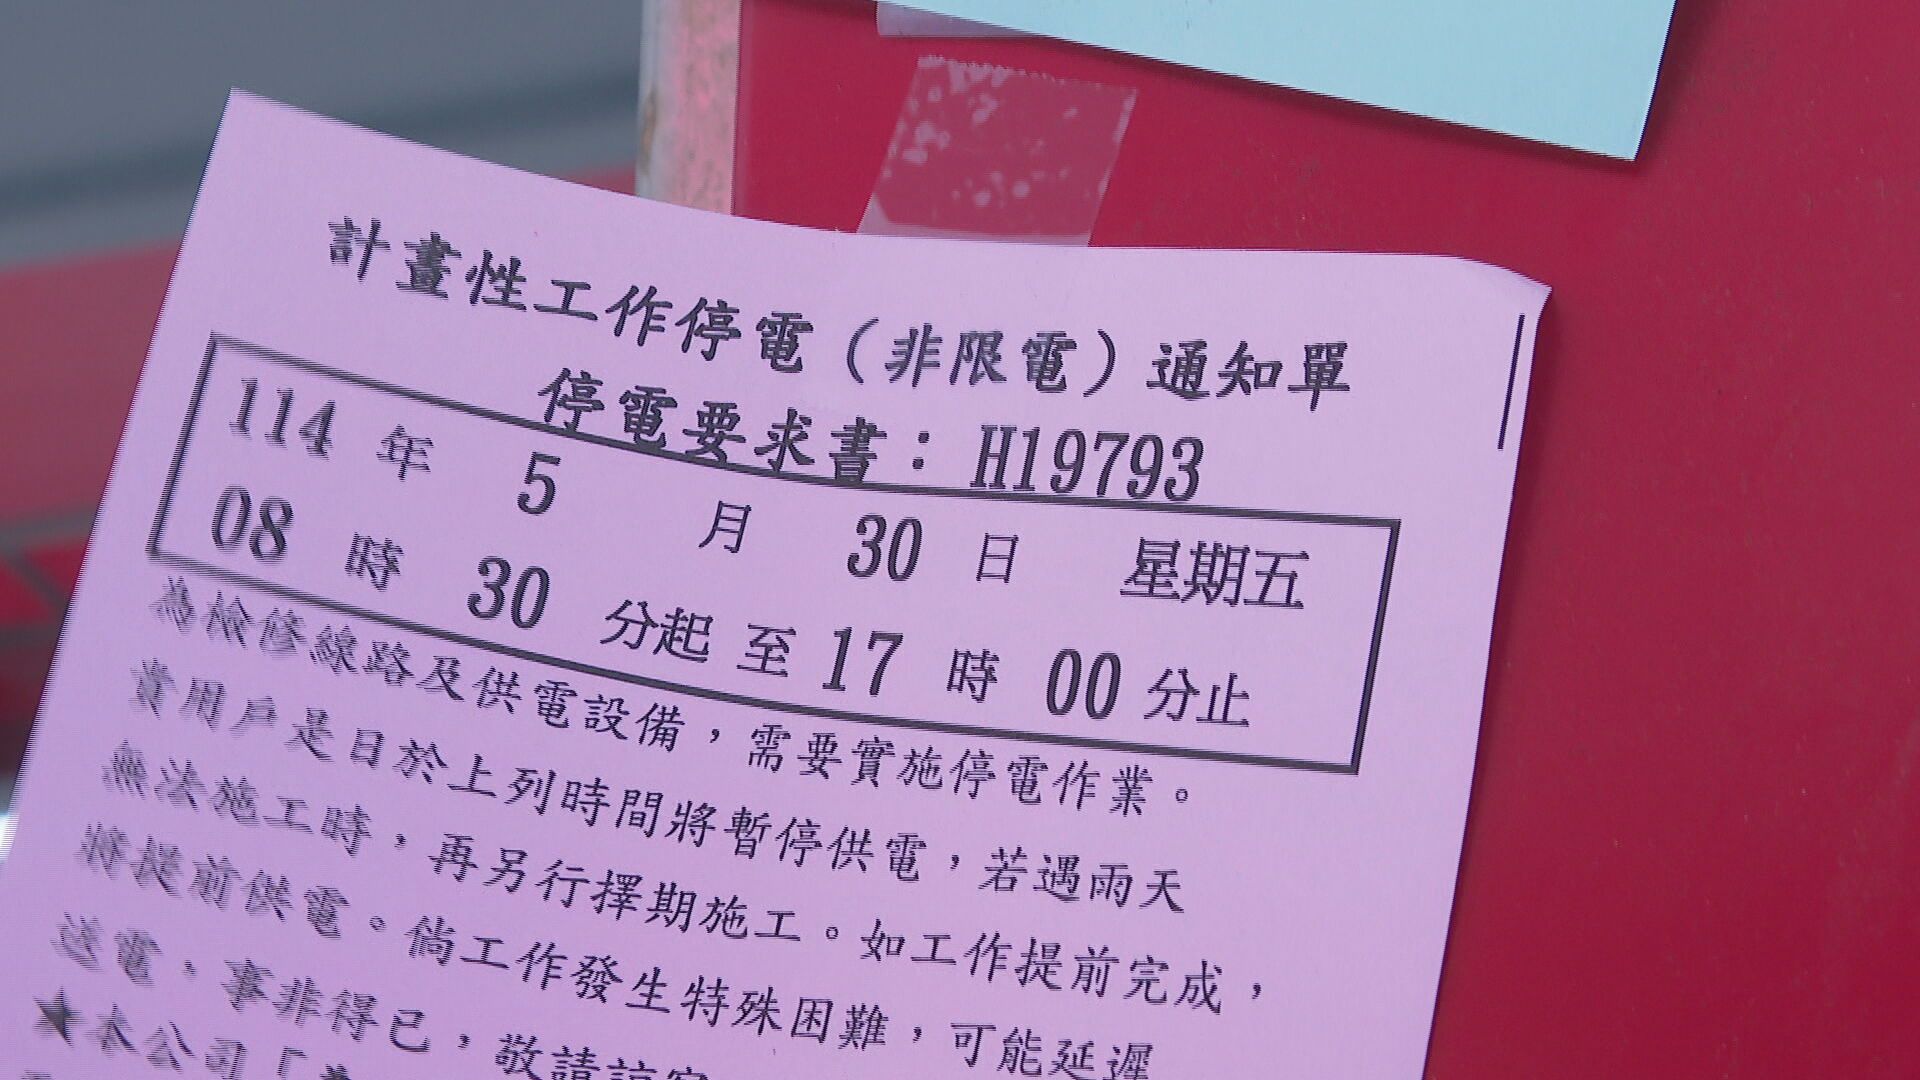 計畫性工作停電（非限電）通知單
停電要求書：H19793
114 年 5 月 30 日 星期五
08 時 30 分起 至 17 時 00 分止
為檢修線路及供電設備，需要實施停電作業。
貴用戶是日於上列時間將暫停供電，若遇雨天
無法施工時，再另行擇期施工。如工作提前完成，
將提前供電。倘工作發生特殊困難，可能延遲
送電，事非得已，敬請諒察
★本公司「